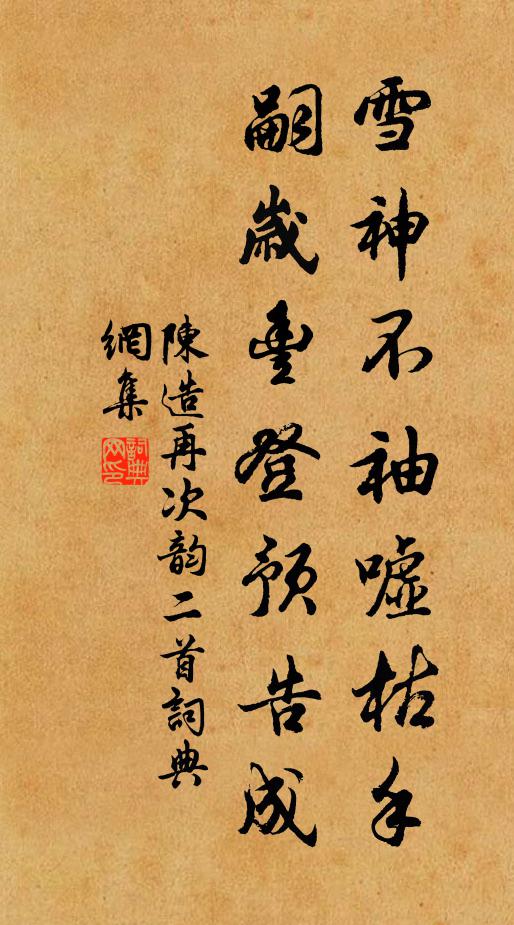 雪神不袖嘘枯手
嗣歲豐登預告成
陳造再次韵二首詞典
網集
詞典網印